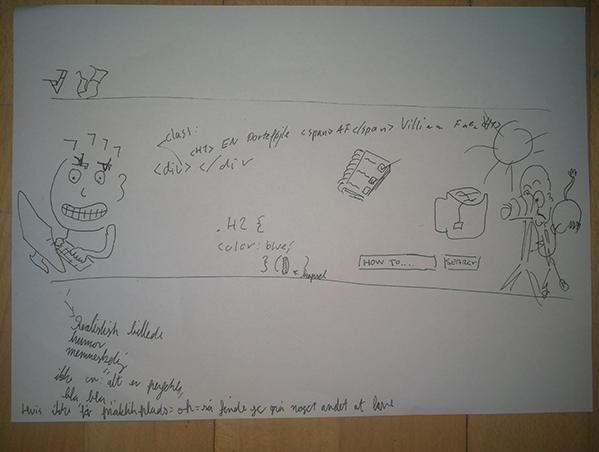 class:
<H1> EN Portefølje <span> AF </span> Villiam </H1>
<div> </div
.H2 {
color: blue;
}
HOW TO.... SEARCH
Realistisk billede
humor
menneskelig
ikke en: "alt er perfekt,
bla bla
Hvis ikke får praktikplads = ok = så finde jeg på noget andet at lave